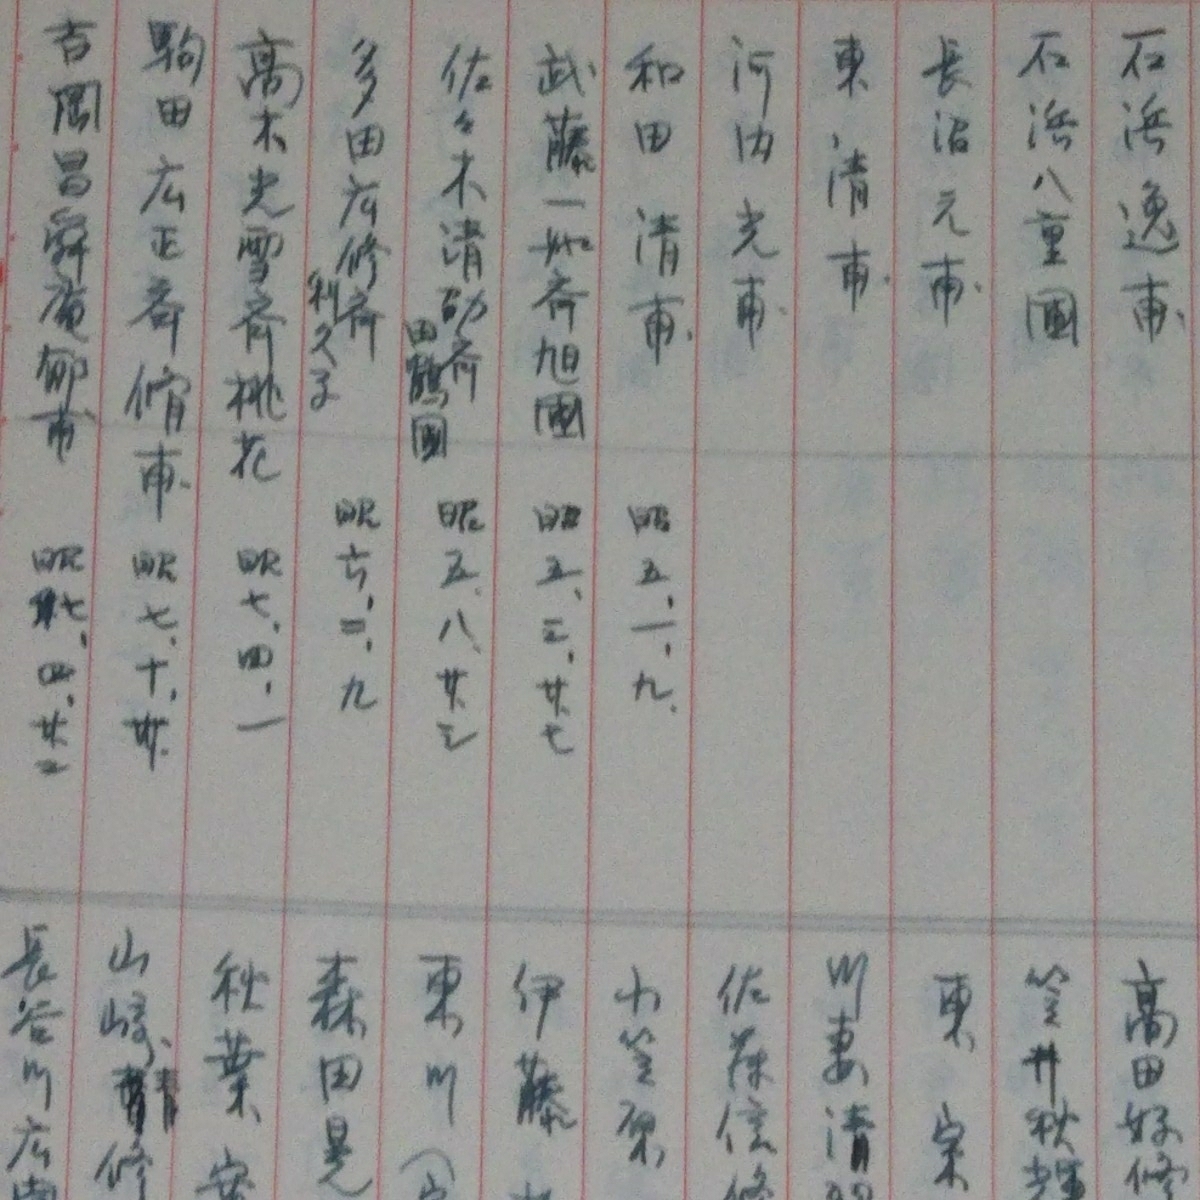 石浜逸甫
石浜八重圃
長沼元甫
東 清甫
河内光甫
和田 清甫 昭五、一、九
武藤一如斉旭圃 昭五、三、廿七
佐々木清劭斉 田鶴圃 昭五、八、廿三
多田広修斉 利久子 昭六、二、九
高木光雪斉桃花 昭七、四、一
駒田広正斉脩甫 昭七、十、廿
吉岡昌舜庵郁甫 昭七、四、廿二
高田好修
笠井秋
東 宗
川妻清
佐藤信修
小笠原
伊藤
東川
森田晃
秋葉安
山崎清修
長谷川広